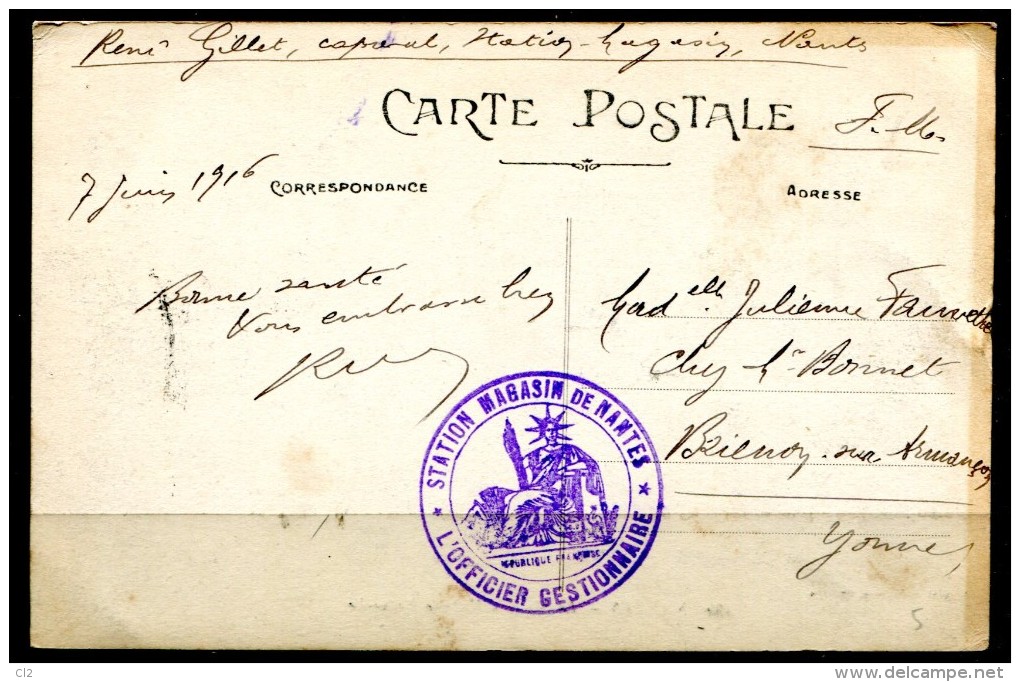 René Gillet, caporal, Station-Magasin, Nantes
CARTE POSTALE
F. M.
7 Juin 1916
CORRESPONDANCE
ADRESSE
Bonne santé
Vous embrasse bien
Mad elle Julienne Fauvette
Chez Mr Bonnet
Brienon-sur-Armançon
Yonne
STATION MAGASIN DE NANTES
RÉPUBLIQUE FRANÇAISE
* L'OFFICIER GESTIONNAIRE *
5
Cl2
www.delcampe.net